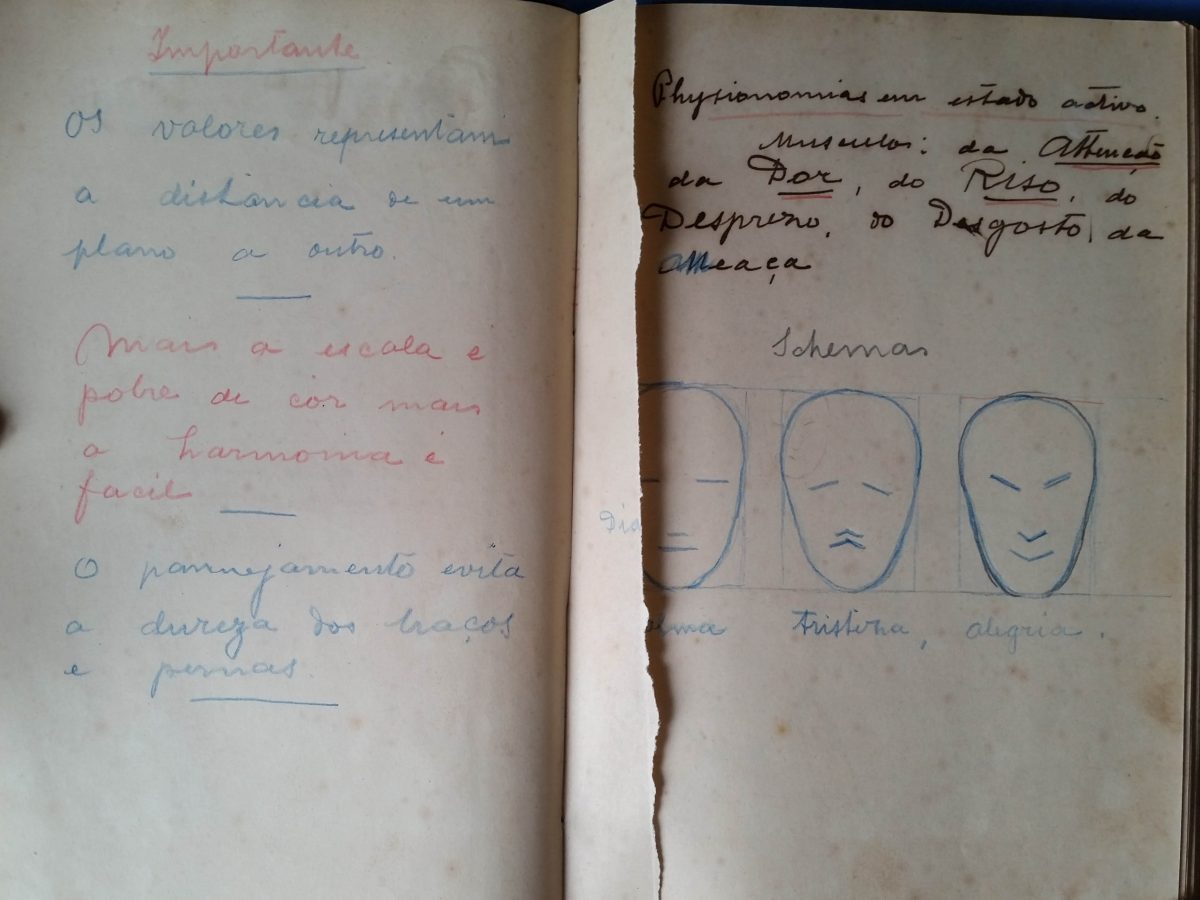 Importante
Os valores representam
a distancia de um
plano a outro.
Mais a escala é
pobre de côr mais
a harmonia é
facil
O pannejamento evita
a dureza dos braços
e pernas.
Physionomias em estado activo.
Musculos: da Attenção
da Dor, do Riso, do
Desprezo, do Desgosto, da
Ameaça
Schemas
Dia
alma tristeza, alegria.